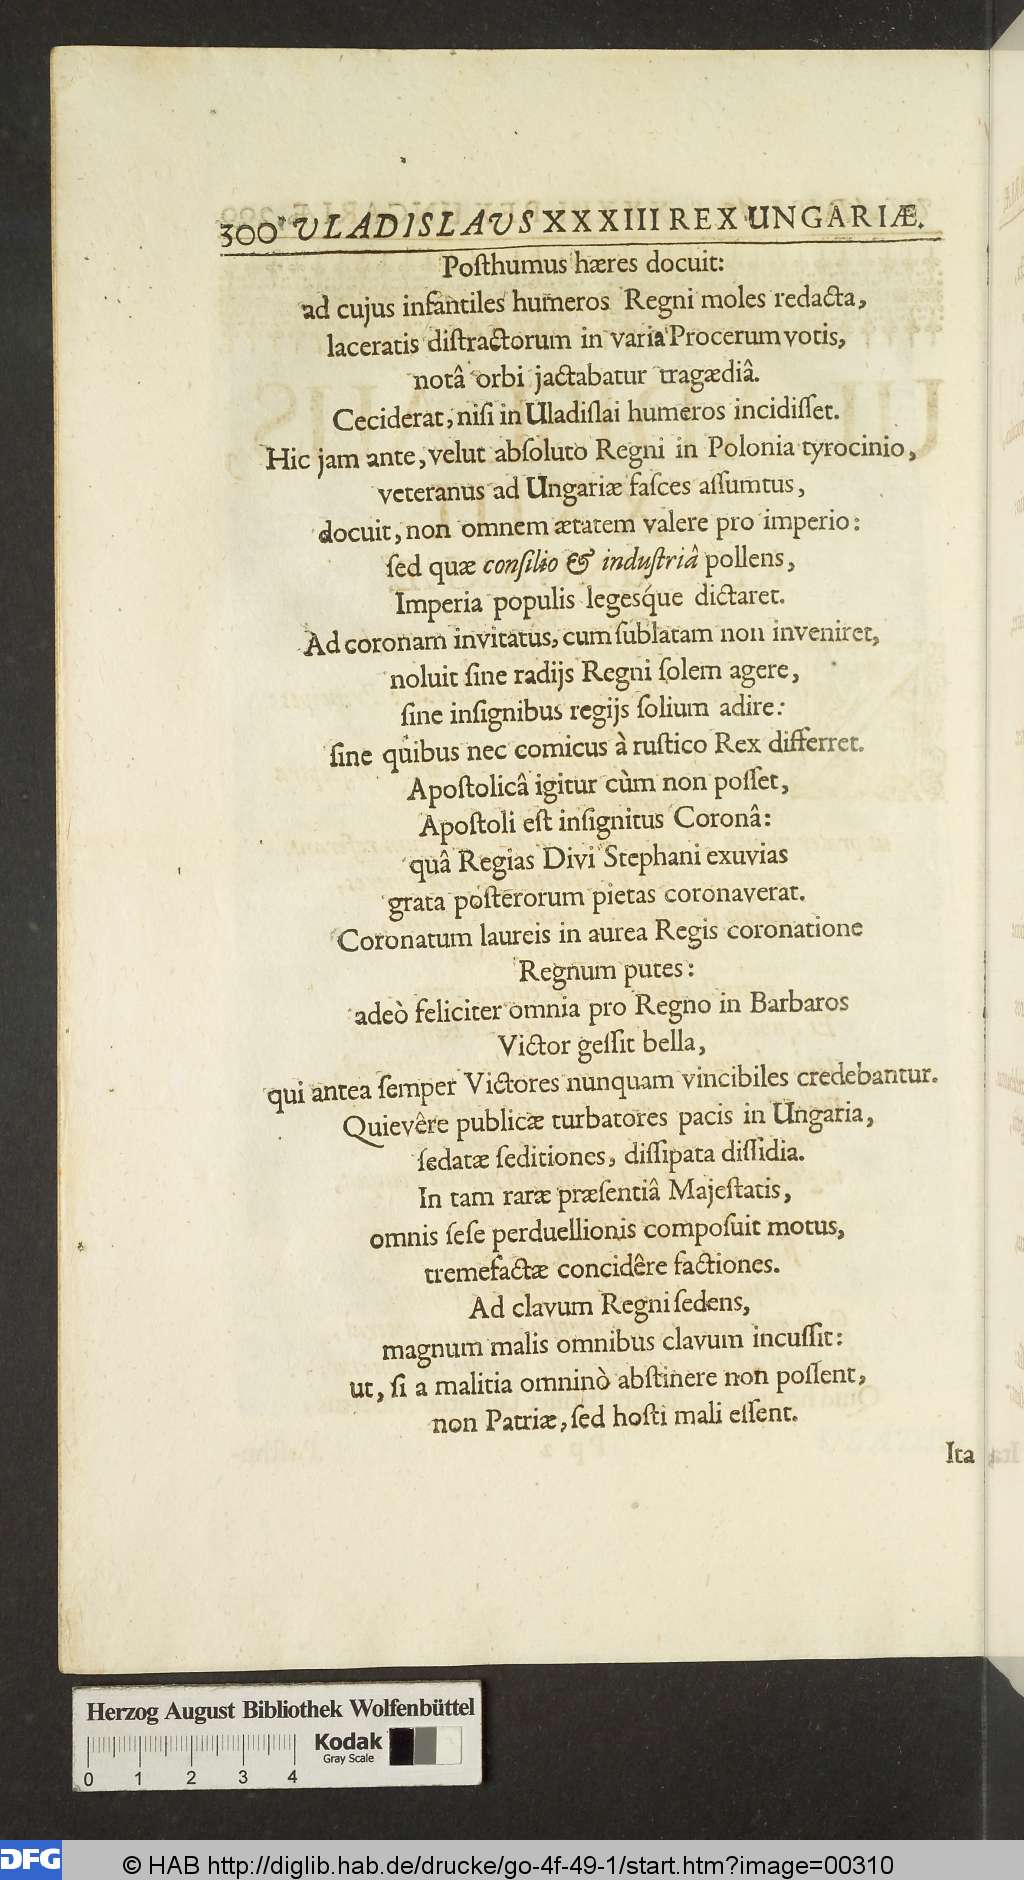 300 VLADISLAVS XXXIII REX UNGARIÆ.
Poſthumus hæres docuit:
ad cujus infantiles humeros Regni moles redacta,
laceratis diſtractorum in varia Procerum votis,
notâ orbi jactabatur tragædiâ.
Ceciderat, niſi in Uladiſlai humeros incidiſſet.
Hic jam ante, velut abſoluto Regni in Polonia tyrocinio,
veteranus ad Ungariæ faſces aſſumtus,
docuit, non omnem ætatem valere pro imperio:
ſed quæ conſilio & induſtriâ pollens,
Imperia populis legesq́ue dictaret.
Ad coronam invitatus, cum ſublatam non inveniret,
noluit ſine radijs Regni ſolem agere,
ſine inſignibus regijs ſolium adire:
ſine quibus nec comicus à ruſtico Rex differret.
Apoſtolicâ igitur cùm non poſſet,
Apoſtoli eſt inſignitus Coronâ:
quâ Regias Divi Stephani exuvias
grata poſterorum pietas coronaverat.
Coronatum laureis in aurea Regis coronatione
Regnum putes:
adeò feliciter omnia pro Regno in Barbaros
Victor geſſit bella,
qui antea ſemper Victores nunquam vincibiles credebantur.
Quievêre publicæ turbatores pacis in Ungaria,
ſedatæ ſeditiones, diſſipata diſſidia.
In tam raræ præſentiâ Majeſtatis,
omnis ſeſe perduellionis compoſuit motus,
tremefactæ concidêre factiones.
Ad clavum Regni ſedens,
magnum malis omnibus clavum incuſſit:
ut, ſi a malitia omninò abſtinere non poſſent,
non Patriæ, ſed hoſti mali eſſent.
Ita
Herzog August Bibliothek Wolfenbüttel
Kodak
Gray Scale
0 1 2 3 4
DFG © HAB http://diglib.hab.de/drucke/go-4f-49-1/start.htm?image=00310